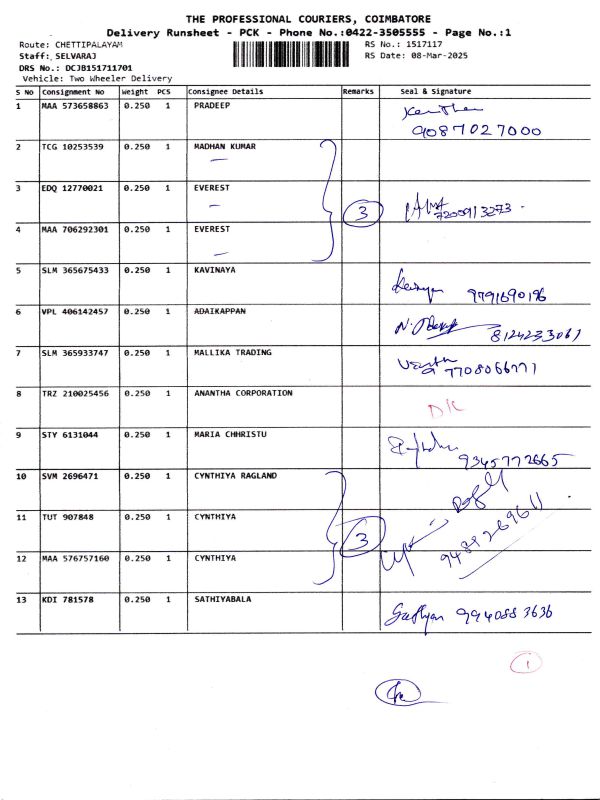 THE PROFESSIONAL COURIERS, COIMBATORE
Delivery Runsheet - PCK - Phone No.:0422-3505555 - Page No.:1
Route: CHETTIPALAYAM RS No.: 1517117
Staff: SELVARAJ RS Date: 08-Mar-2025
DRS No.: DCJB151711701
Vehicle: Two Wheeler Delivery
S No Consignment No Weight PCS Consignee Details Remarks Seal & Signature
1 MAA 573658863 0.250 1 PRADEEP
9087027000
2 TCG 10253539 0.250 1 MADHAN KUMAR
3 EDQ 12770021 0.250 1 EVEREST 3 7200913273
4 MAA 706292301 0.250 1 EVEREST
5 SLM 365675433 0.250 1 KAVINAYA
9791690196
6 VPL 406142457 0.250 1 ADAIKAPPAN
8124233061
7 SLM 365933747 0.250 1 MALLIKA TRADING
7708066771
8 TRZ 210025456 0.250 1 ANANTHA CORPORATION
DK
9 STY 6131044 0.250 1 MARIA CHHRISTU
9345772665
10 SVM 2696471 0.250 1 CYNTHIYA RAGLAND
11 TUT 907848 0.250 1 CYNTHIYA 3
9489269611
12 MAA 576757160 0.250 1 CYNTHIYA
13 KDI 781578 0.250 1 SATHIYABALA
9940883636
1